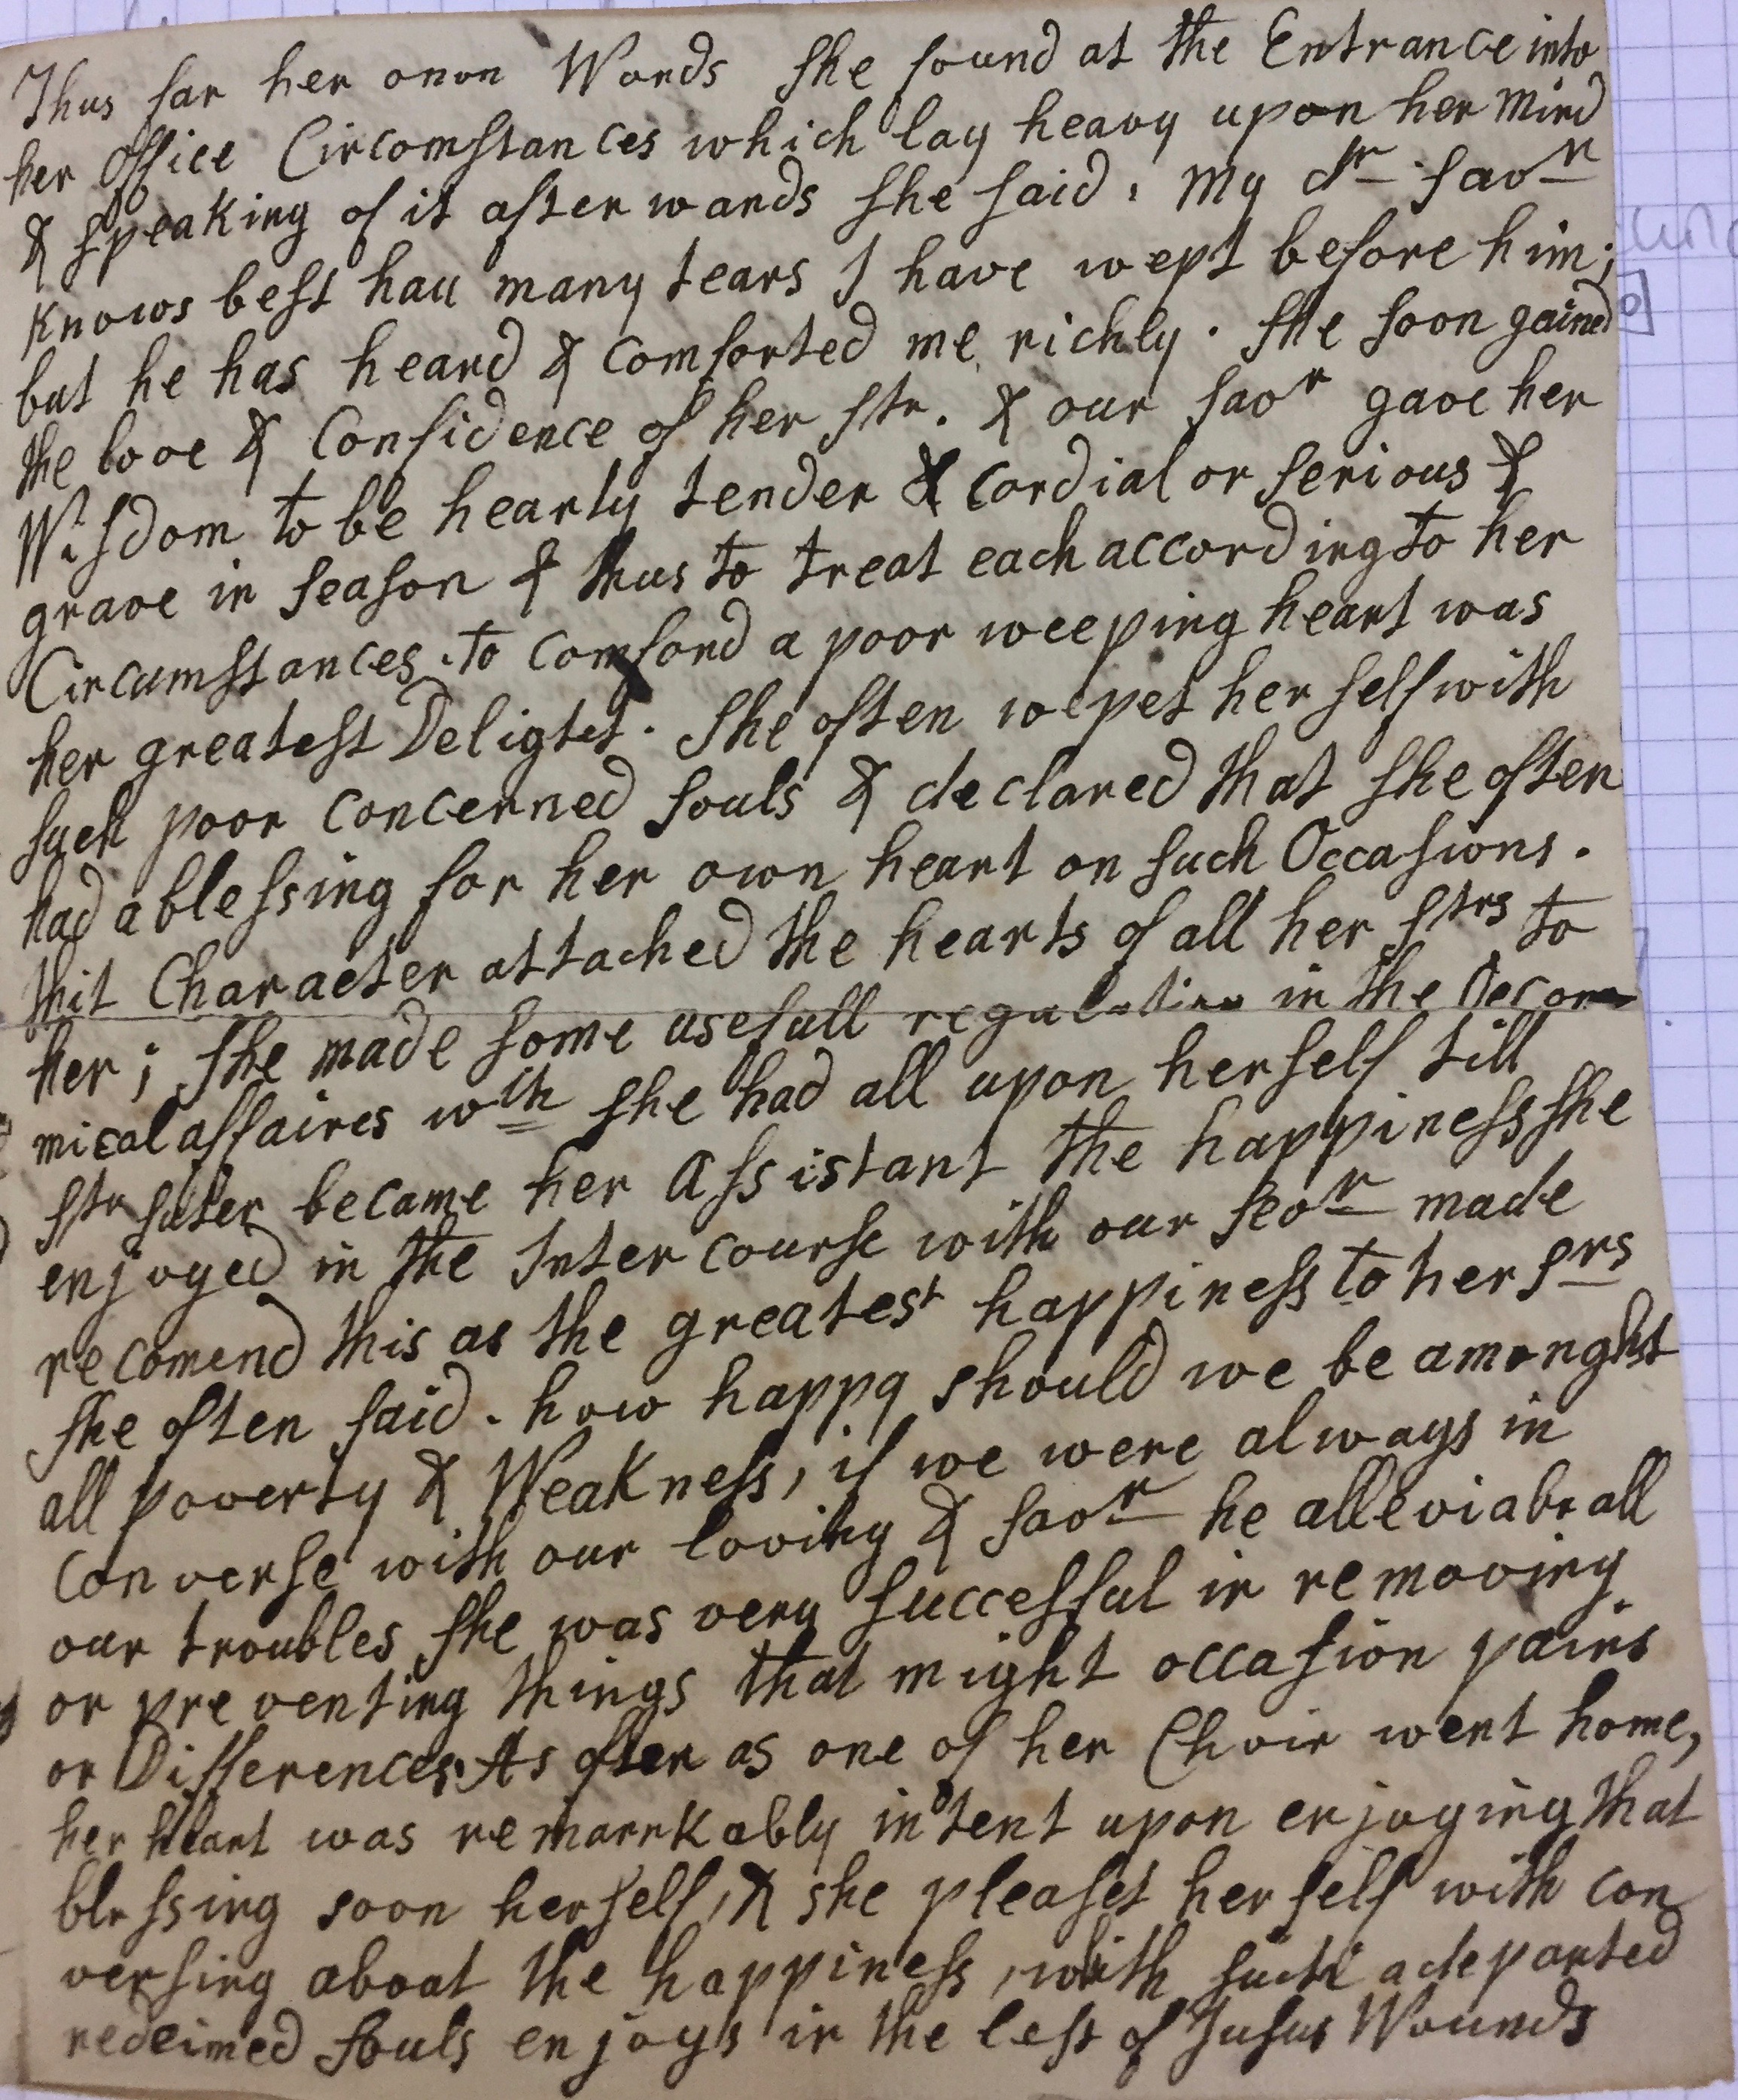 Thus far her onon Words She found at the Entrance into
her office Circomstances which lay heavy upon her Mind
& speaking of it afterwards she said, My dr Savr
knows best hau many tears I have wept before him;
but he has heard & comforted me richly. She soon gained
the love & Confidence of her Str. & our Savr gave her
Wisdom to be hearty tender & cordial or serious &
grave in season & thus to treat each according to her
Circumstances. to comford a poor weeping heart was
her greatest Deligtet. She often wepet her self with
such poor concerned souls & declared that she often
had a blessing for her own heart on such Occasions.
thit Character attached the hearts of all her Strs to
her; she made some usefull regulation in the Oecono
mical affaires wth she had all upon herself till
Str became her Assistant the happiness she
enjoyed in the Intercourse with our Seovr made
recomend this as the greatest happiness to her Srs
she often said. how happy should we be amonghst
all poverty & Weakness, if we were always in
converse with our loving & Savr he alleviabe all
our troubles she was very successful in removing
or preventing things that might occasion pains
or Differences. As often as one of her Choir went home,
her heart was remarrkably intent upon enjoying that
blessing soon herself, & she pleaset her self with con
versing aboat the happiness, with such a departed
redeimed Souls enjoys in the left of Jusus Wounds